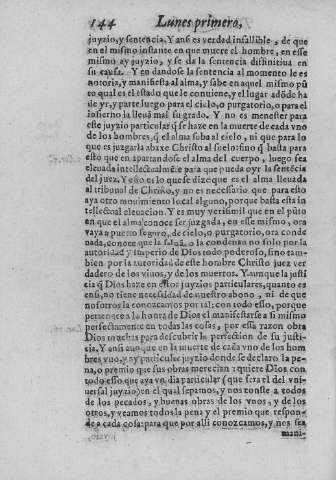 144 Lunes primero,
juyzio, y sentencia. Y ansi es verdad infallible, de que
en el mismo instante en que muere el hombre, en esse
mismo ay juyzio, y se da la sentencia difinitiua en
su causa. Y en dandose la sentencia al momento le es
notoria, y manifiesta al alma, y sabe en aquel mismo pũ
to qual es el estado que le conuiene, y el lugar adõde ha
de yr, y parte luego para el cielo, o purgatorio, o para el
infierno la lleuã mal su grado. Y no es menester para
este juyzio particular q̃ se haze en la muerte de cada vno
de los hombres, q̃ el alma suba al cielo, ni que para lo
que es juzgarla abaxe Christo al suelo: sino q̃ basta para
esto que en apartandose el alma del cuerpo, luego sea
eleuada intellectualmẽte para que pueda oyr la sentẽcia
del juez. Y esto es lo que se dize que es el alma lleuada
al tribunal de Christo, y no es necessario que para esto
aya otro mouimiento local alguno, porque basta esta in
tellectual eleuacion. Y es muy verisimil que en el pũto
en que el alma conoce ser juzgada, en esse mismo, ora
vaya a puerto seguro, de cielo, o purgatorio, ora conde
nada, conoce que la saluã, o la condenan no solo por la
autoridad y imperio de Dios todo poderoso, sino tam-
bien por la autoridad de este hombre Christo juez ver
dadero de los viuos, y de los muertos. Y aunque la justi
cia q̃ Dios haze en estos juyzios particulares, quanto es
ensi, no tiene necessidad de nuestro abono, ni de que
nosotros la conozcamos por tal: con todo esso, porque
pertenece a la honra de Dios el manifestarse a si mismo
perfectamente en todas las cosas, por essa razon obra
Dios muchas para descubrir la perfection de su justi-
cia. Y ansi aunque en la muerte de cada vno de los hom
bres, vuo, y ay particular juyzio donde se declaro la pe-
na, o premio que sus obras merecian: quiere Dios con
todo esso que aya vn dia particular (que sera el del vni-
uersal juyzio) en el qual sepamos, y nos conste a todos
de los pecados, y buenas obras de los vnos, y de los
otros, y veamos todos la pena y el premio que respon-
de a cada cosa: para que por alli conozcamos, y nos sea
mani-